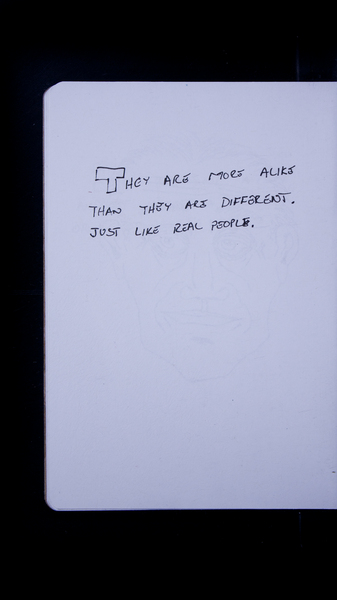 THEY ARE MORE ALIKE
THAN THEY ARE DIFFERENT.
JUST LIKE REAL PEOPLE.